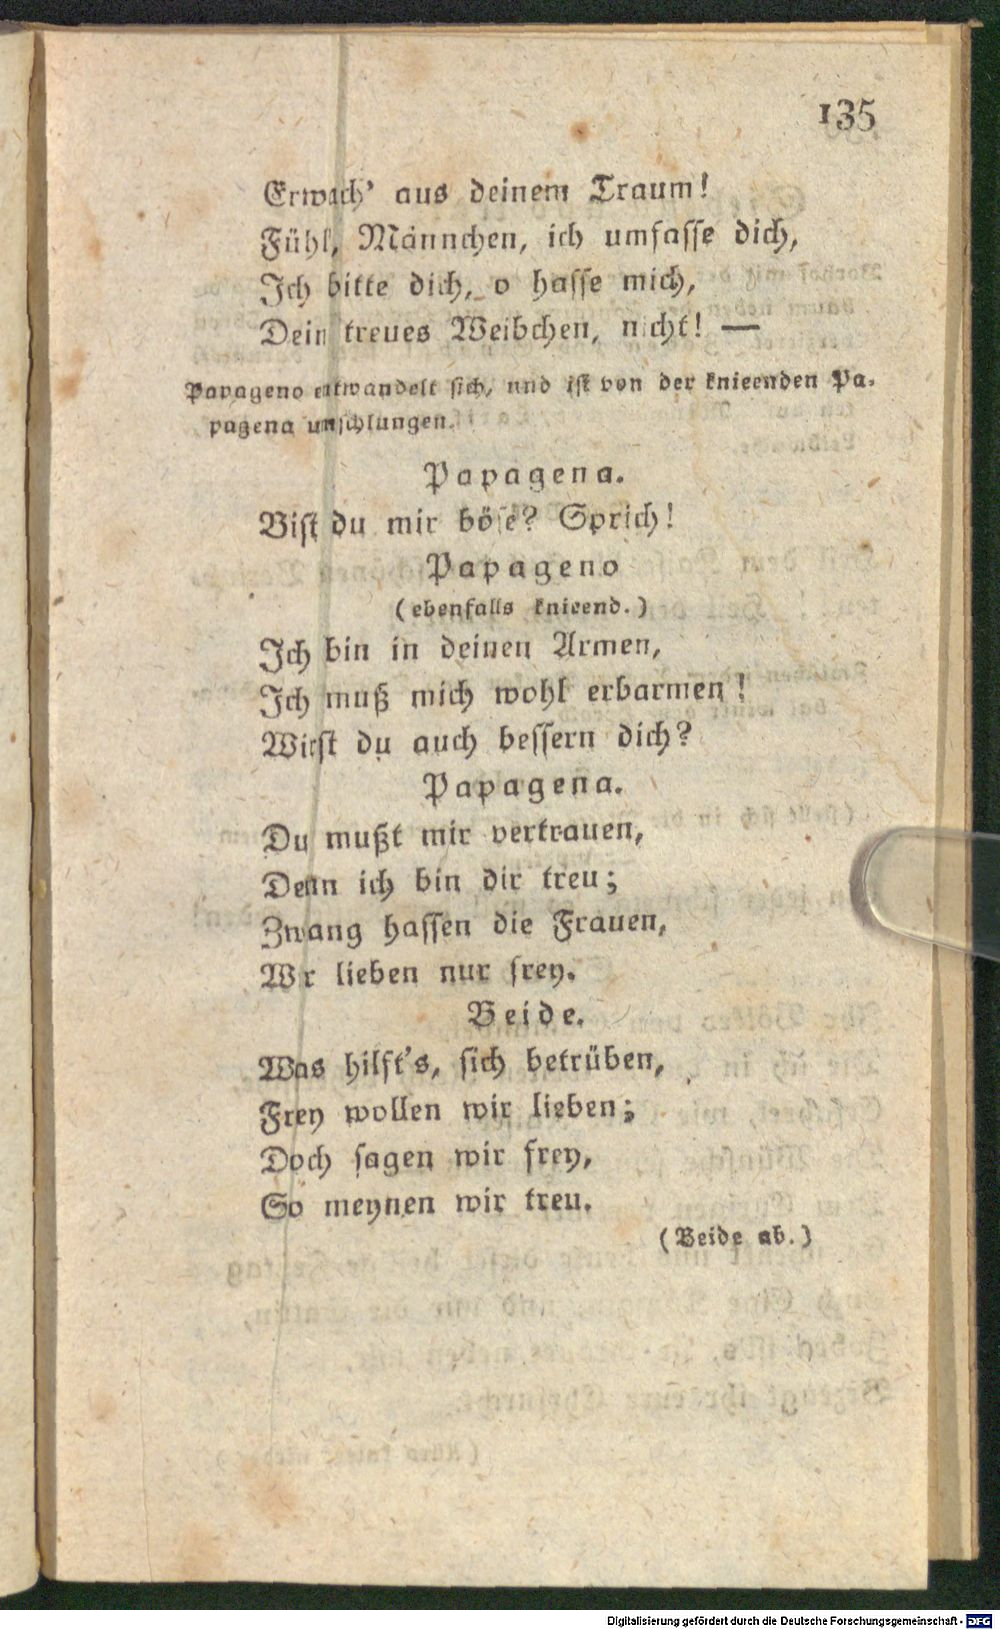 135
Erwach' aus deinem Traum!
Fühl, Männchen, ich umfasse dich,
Ich bitte dich, o hasse mich,
Dein treues Weibchen, nicht! —
Papageno entwandelt sich, und ist von der knieenden Pa-
pagena umschlungen.
Papagena.
Bist du mir böse? Sprich!
Papageno
(ebenfalls knieend.)
Ich bin in deinen Armen,
Ich muß mich wohl erbarmen!
Wirst du auch bessern dich?
Papagena.
Du mußt mir vertrauen,
Denn ich bin dir treu;
Zwang hassen die Frauen,
Wir lieben nur frey.
Beide.
Was hilft's, sich betrüben,
Frey wollen wir lieben;
Doch sagen wir frey,
So meynen wir treu.
(Beide ab.)
Digitalisierung gefördert durch die Deutsche Forschungsgemeinschaft - DFG